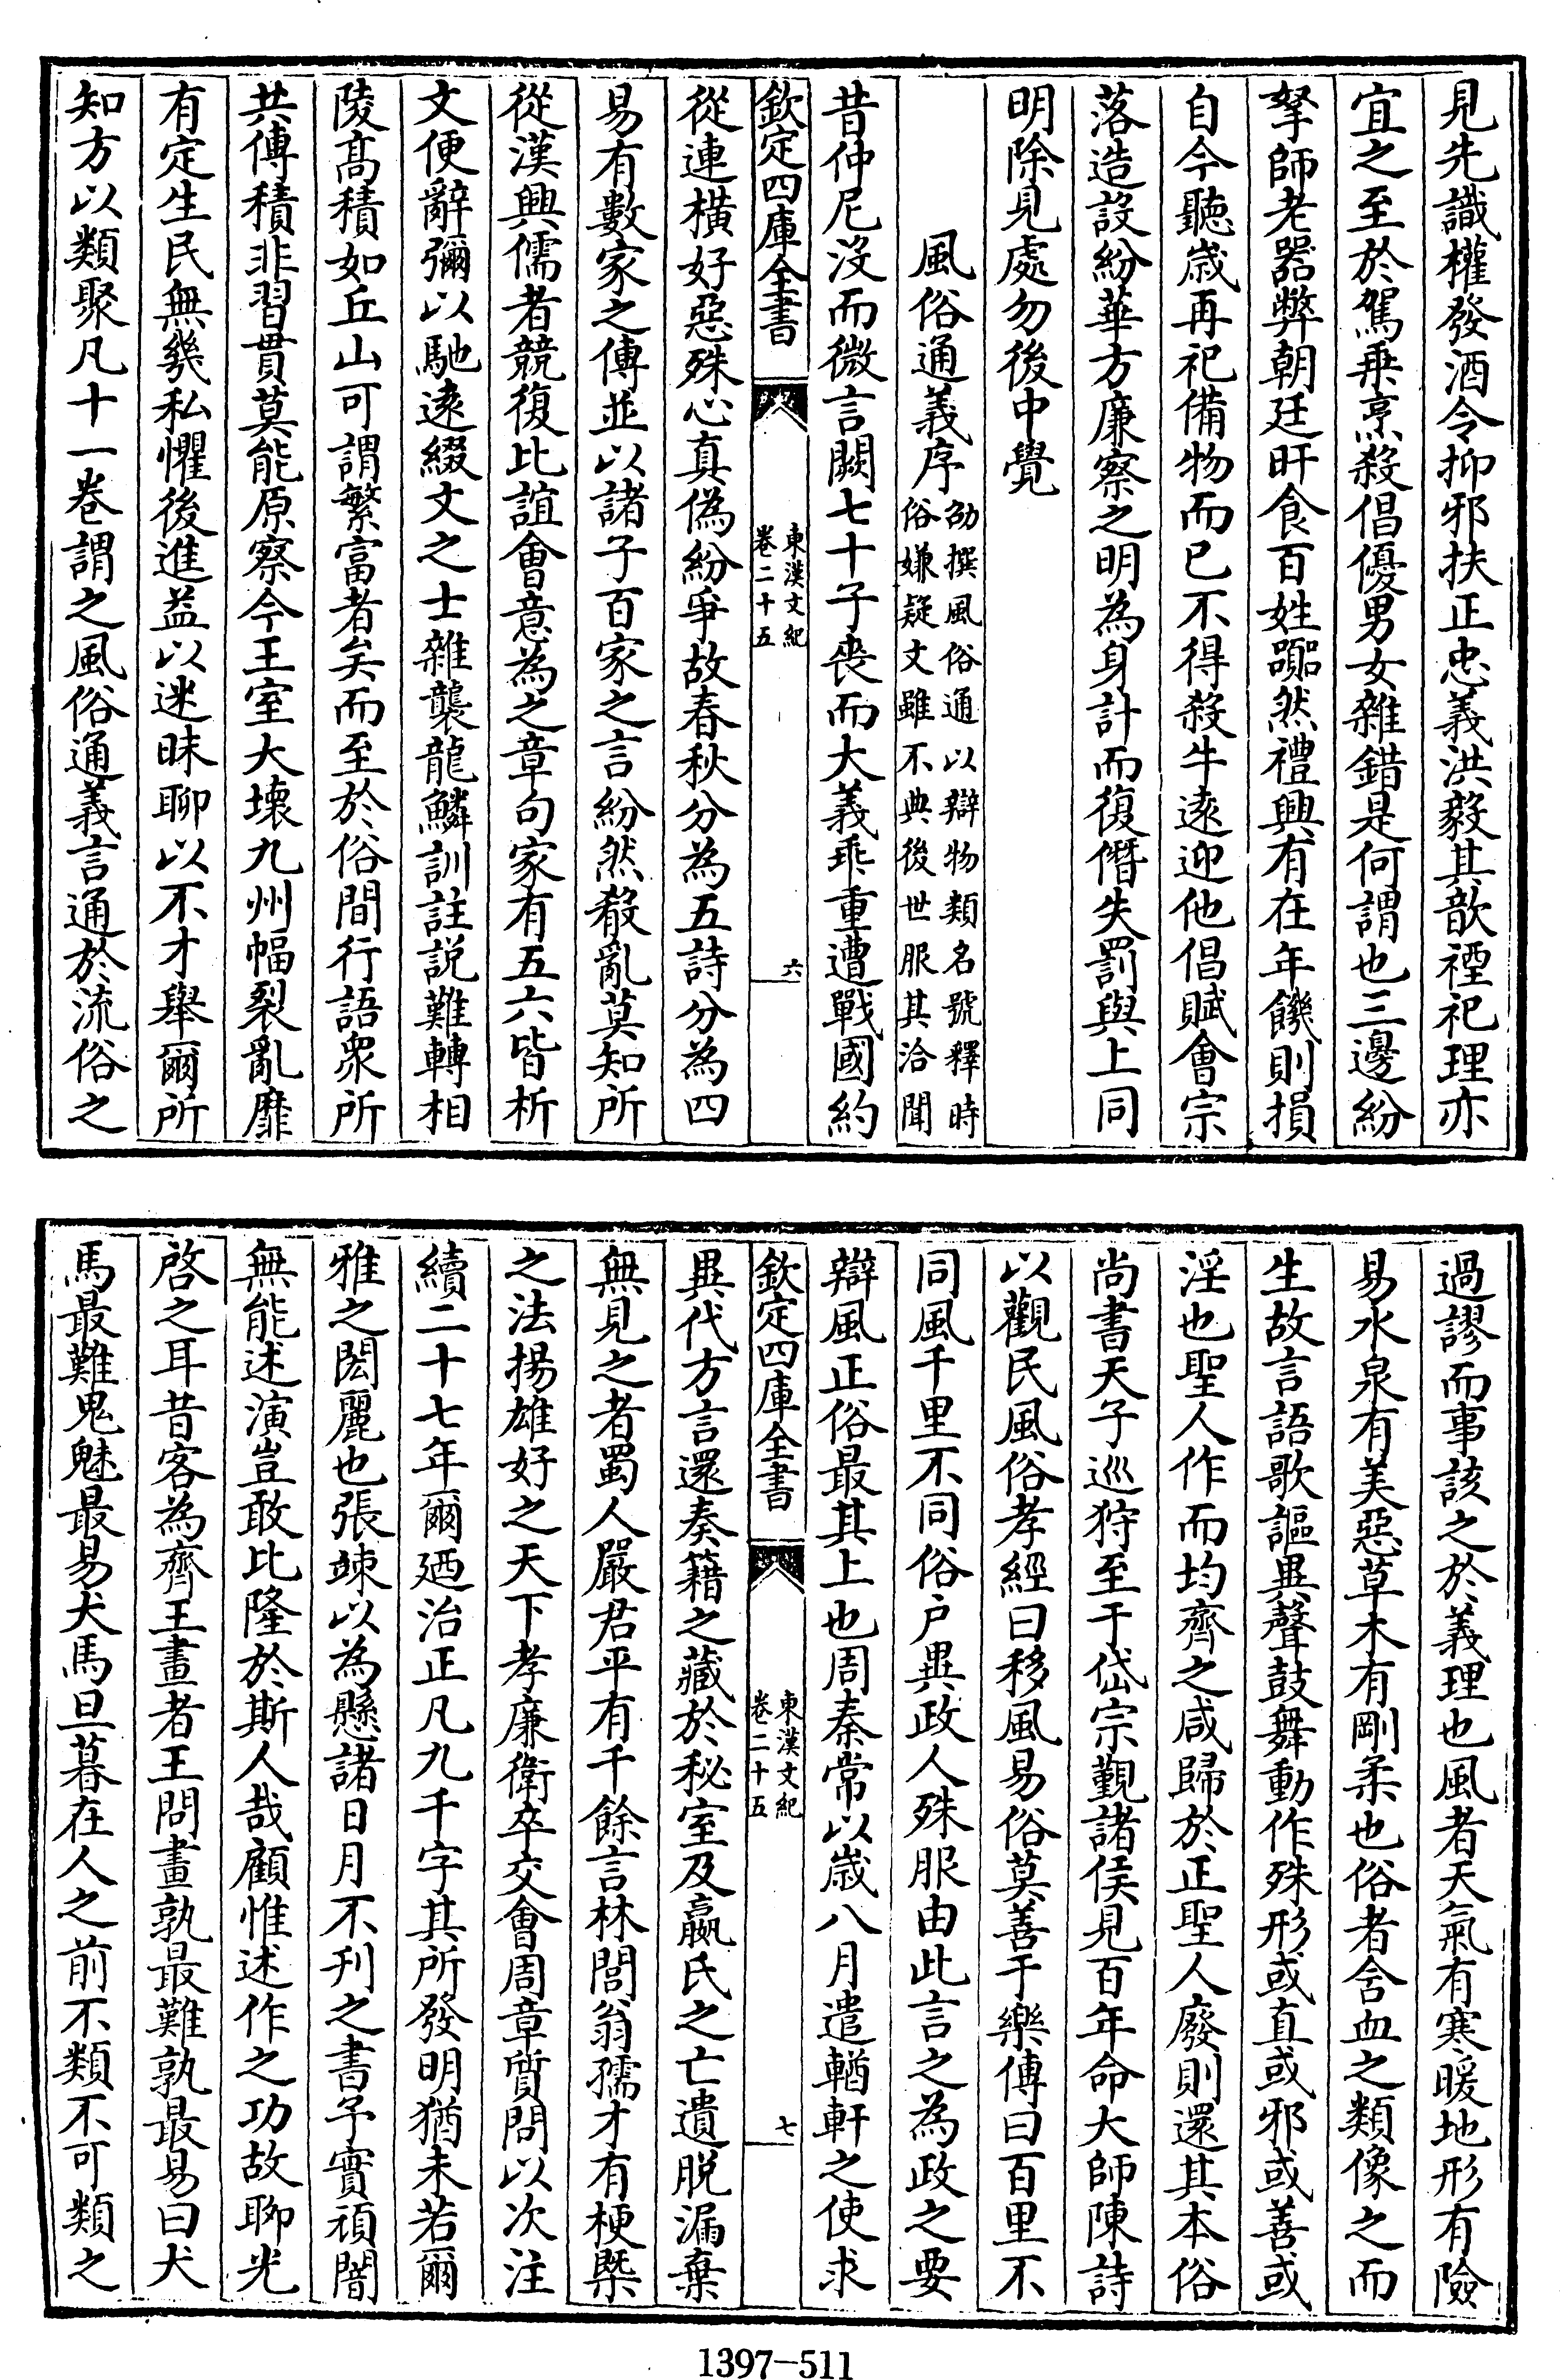 見先識權發酒令抑邪扶正忠義洪毅其歆禋祀理亦
宜之至於駕乗烹殺倡優男女雜錯是何謂也三邊紛
拏師老器弊朝廷旰食百姓嚻然禮興有在年饑則損
自今聽歳再祀備物而已不得殺牛遠迎他倡賦會宗
落造設紛華方廉察之明為身計而復僭失罰與上同
明除見處勿後中覺
風俗通義序
劭撰風俗通以辯物類名號釋時
俗嫌疑文雖不典後世服其洽聞
昔仲尼沒而微言闕七十子喪而大義乖重遭戰國約
欽定四庫全書
東漢文紀
卷二十五
六
從連橫好惡殊心真偽紛爭故春秋分為五詩分為四
易有數家之傳並以諸子百家之言紛然殽亂莫知所
從漢興儒者競復比誼會意為之章句家有五六皆析
文便辭彌以馳逺綴文之士雜襲龍鱗訓註説難轉相
陵髙積如丘山可謂繁富者矣而至於俗間行語衆所
共傳積非習貫莫能原察今王室大壞九州幅裂亂靡
有定生民無幾私懼後進益以迷昧聊以不才舉爾所
知方以類聚凡十一卷謂之風俗通義言通於流俗之
過謬而事該之於義理也風者天氣有寒暖地形有險
易水泉有美惡草木有剛柔也俗者含血之類像之而
生故言語歌謳異聲鼓舞動作殊形或直或邪或善或
淫也聖人作而均齊之咸歸於正聖人廢則還其本俗
尚書天子巡狩至于岱宗觀諸侯見百年命大師陳詩
以觀民風俗孝經曰移風易俗莫善于樂傳曰百里不
同風千里不同俗户異政人殊服由此言之為政之要
辯風正俗最其上也周秦常以歳八月遣輶軒之使求
欽定四庫全書
東漢文紀
卷二十五
七
異代方言還奏籍之藏於秘室及嬴氏之亡遺脱漏棄
無見之者蜀人嚴君平有千餘言林閭翁孺才有梗槩
之法揚雄好之天下孝廉衛卒交會周章質問以次注
續二十七年爾廼治正凡九千字其所發明猶未若爾
雅之閎麗也張竦以為懸諸日月不刋之書予實頑闇
無能述演豈敢比隆於斯人哉顧惟述作之功故聊光
啓之耳昔客為齊王畫者王問畫孰最難孰最易曰犬
馬最難鬼魅最易犬馬旦暮在人之前不類不可類之
1397-511